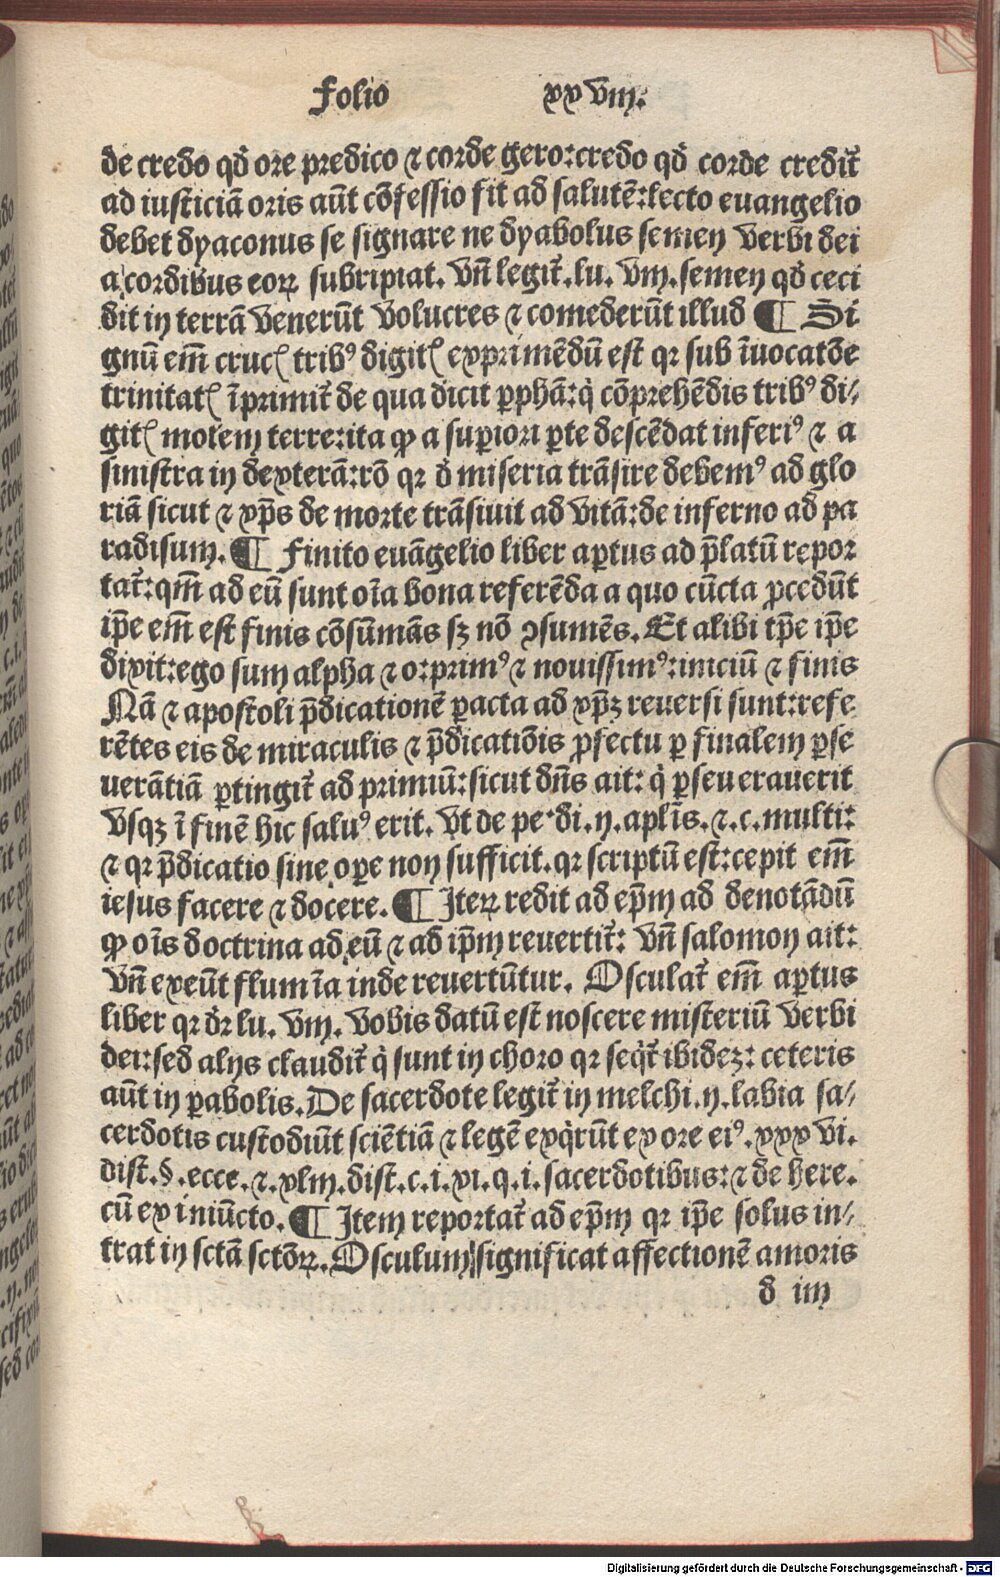 Folio xxviij.
de credo qd̄ ore predico ⁊ corde gero:credo qd̄ corde credit̄
ad iusticiā oris aūt cōfessio fit ad salutē:lecto euangelio
debet dyaconus se signare ne dyabolus semen verbi dei
a cordibus eoꝝ subripiat. vn̄ legit̄.lu. viij.semen qd̄ ceci
dit in terrā venerūt volucres ⁊ comederūt illud ¶ Si
gnū em̄ crucꝭ tribꝰ digitꝭ exprimēdū est qꝛ sub īuocatōe
trinitatꝭ īprimit̄ de qua dicit ꝓphā:q̇ cōprehēdis tribꝰ di⸗
gitꝭ molem terre:ita ꝙ a suꝑiori ꝑte descēdat inferiꝰ ⁊ a
sinistra in dexterā:rō qꝛ d̄ miseria trāsire debemꝰ ad glo
riā sicut ⁊ xp̄s de morte trāsiuit ad vitā:de inferno ad pa
radisum.¶ Finito euāgelio liber aꝑtus ad p̄latū repor
tat̄:qm̄ ad eū sunt oīa bona referēda a quo cūcta ꝓcedūt
ip̄e em̄ est finis cōsūmās sꝫ nō ꝯsumēs. Et alibi tp̄e ip̄e
dixit:ego sum alpha ⁊ o:primꝰ ⁊ nouissimꝰ:iniciū ⁊ finis
Nā ⁊ apostoli p̄dicationē ꝑacta ad xp̄ꝫ reuersi sunt:refe
rētes eis de miraculis ⁊ p̄dicatiōis ꝓfectu ꝑ finalem ꝑse
uerātiā ꝑtingit̄ ad primiū:sicut dn̄s ait: q̇ ꝑseuerauerit
vsqꝫ ī finē hic saluꝰ erit. vt de pe.di.ij.aplīs.⁊.c.multi:
⁊ qꝛ p̄dicatio sine oꝑe non sufficit.qꝛ scriptū est:cepit em̄
iesus facere ⁊ docere.¶ Iteꝝ redit ad ep̄m ad denotādū
ꝙ oīs doctrina ad eū ⁊ ad ip̄m reuertit̄: vn̄ salomon ait:
vn̄ exeūt flumīa inde reuertūtur. Osculat̄ em̄ aꝑtus
liber qꝛ dr̄ lu. viij. vobis datū est noscere misteriū verbi
dei:sed alijs claudit̄ q̇ sunt in choro qꝛ seqt̄ ibidez: ceteris
aūt in ꝑabolis.De sacerdote legit̄ in melchi.ij.labia sa⸗
cerdotis custodiūt sciētiā ⁊ legē exq̇rūt ex ore eiꝰ.xxxvi.
dist.§.ecce.⁊.xliij.dist.c.i.xi.q.i.sacerdotibus:⁊ de here.
cū ex iniūcto.¶ Item reportat̄ ad ep̄m qꝛ ip̄e solus in⸗
trat in sctā sctōꝝ. Osculum significat affectionē amoris
d iiij
Digitalisierung gefördert durch die Deutsche Forschungsgemeinschaft - DFG